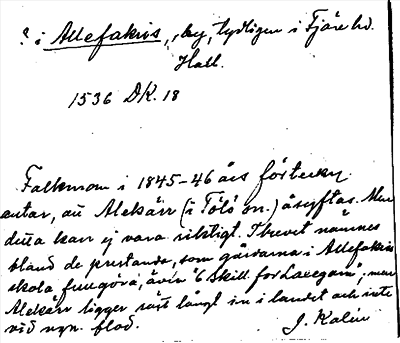 ? i Allefakris, by, tydligen i Fjäre hd.
Hall.
1536 DK. 18
Falkman i 1845-46 års förteckn.
antar, att Alekärr (i Tölö sn.) åsyftas. Men
detta kan ej vara riktigt. I brevet nämnes
bland de prestanda, som gårdarna i Allefakris
skola fullgöra, även "6 skill. for Laxegarn", men
Alekärr ligger rätt långt in i landet och inte
vid ngn. flod. J. Kalén